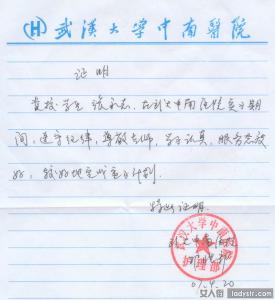 武漢大学中南醫院
证明
贵校学生 在武大中南医院实习期
间，遵守纪律，尊敬老师，学习认真，服务态度
好，较好地完成实习计划。
特此证明。
武汉大学中南医院
护理部
01.4.20
女人街 ladystr.com